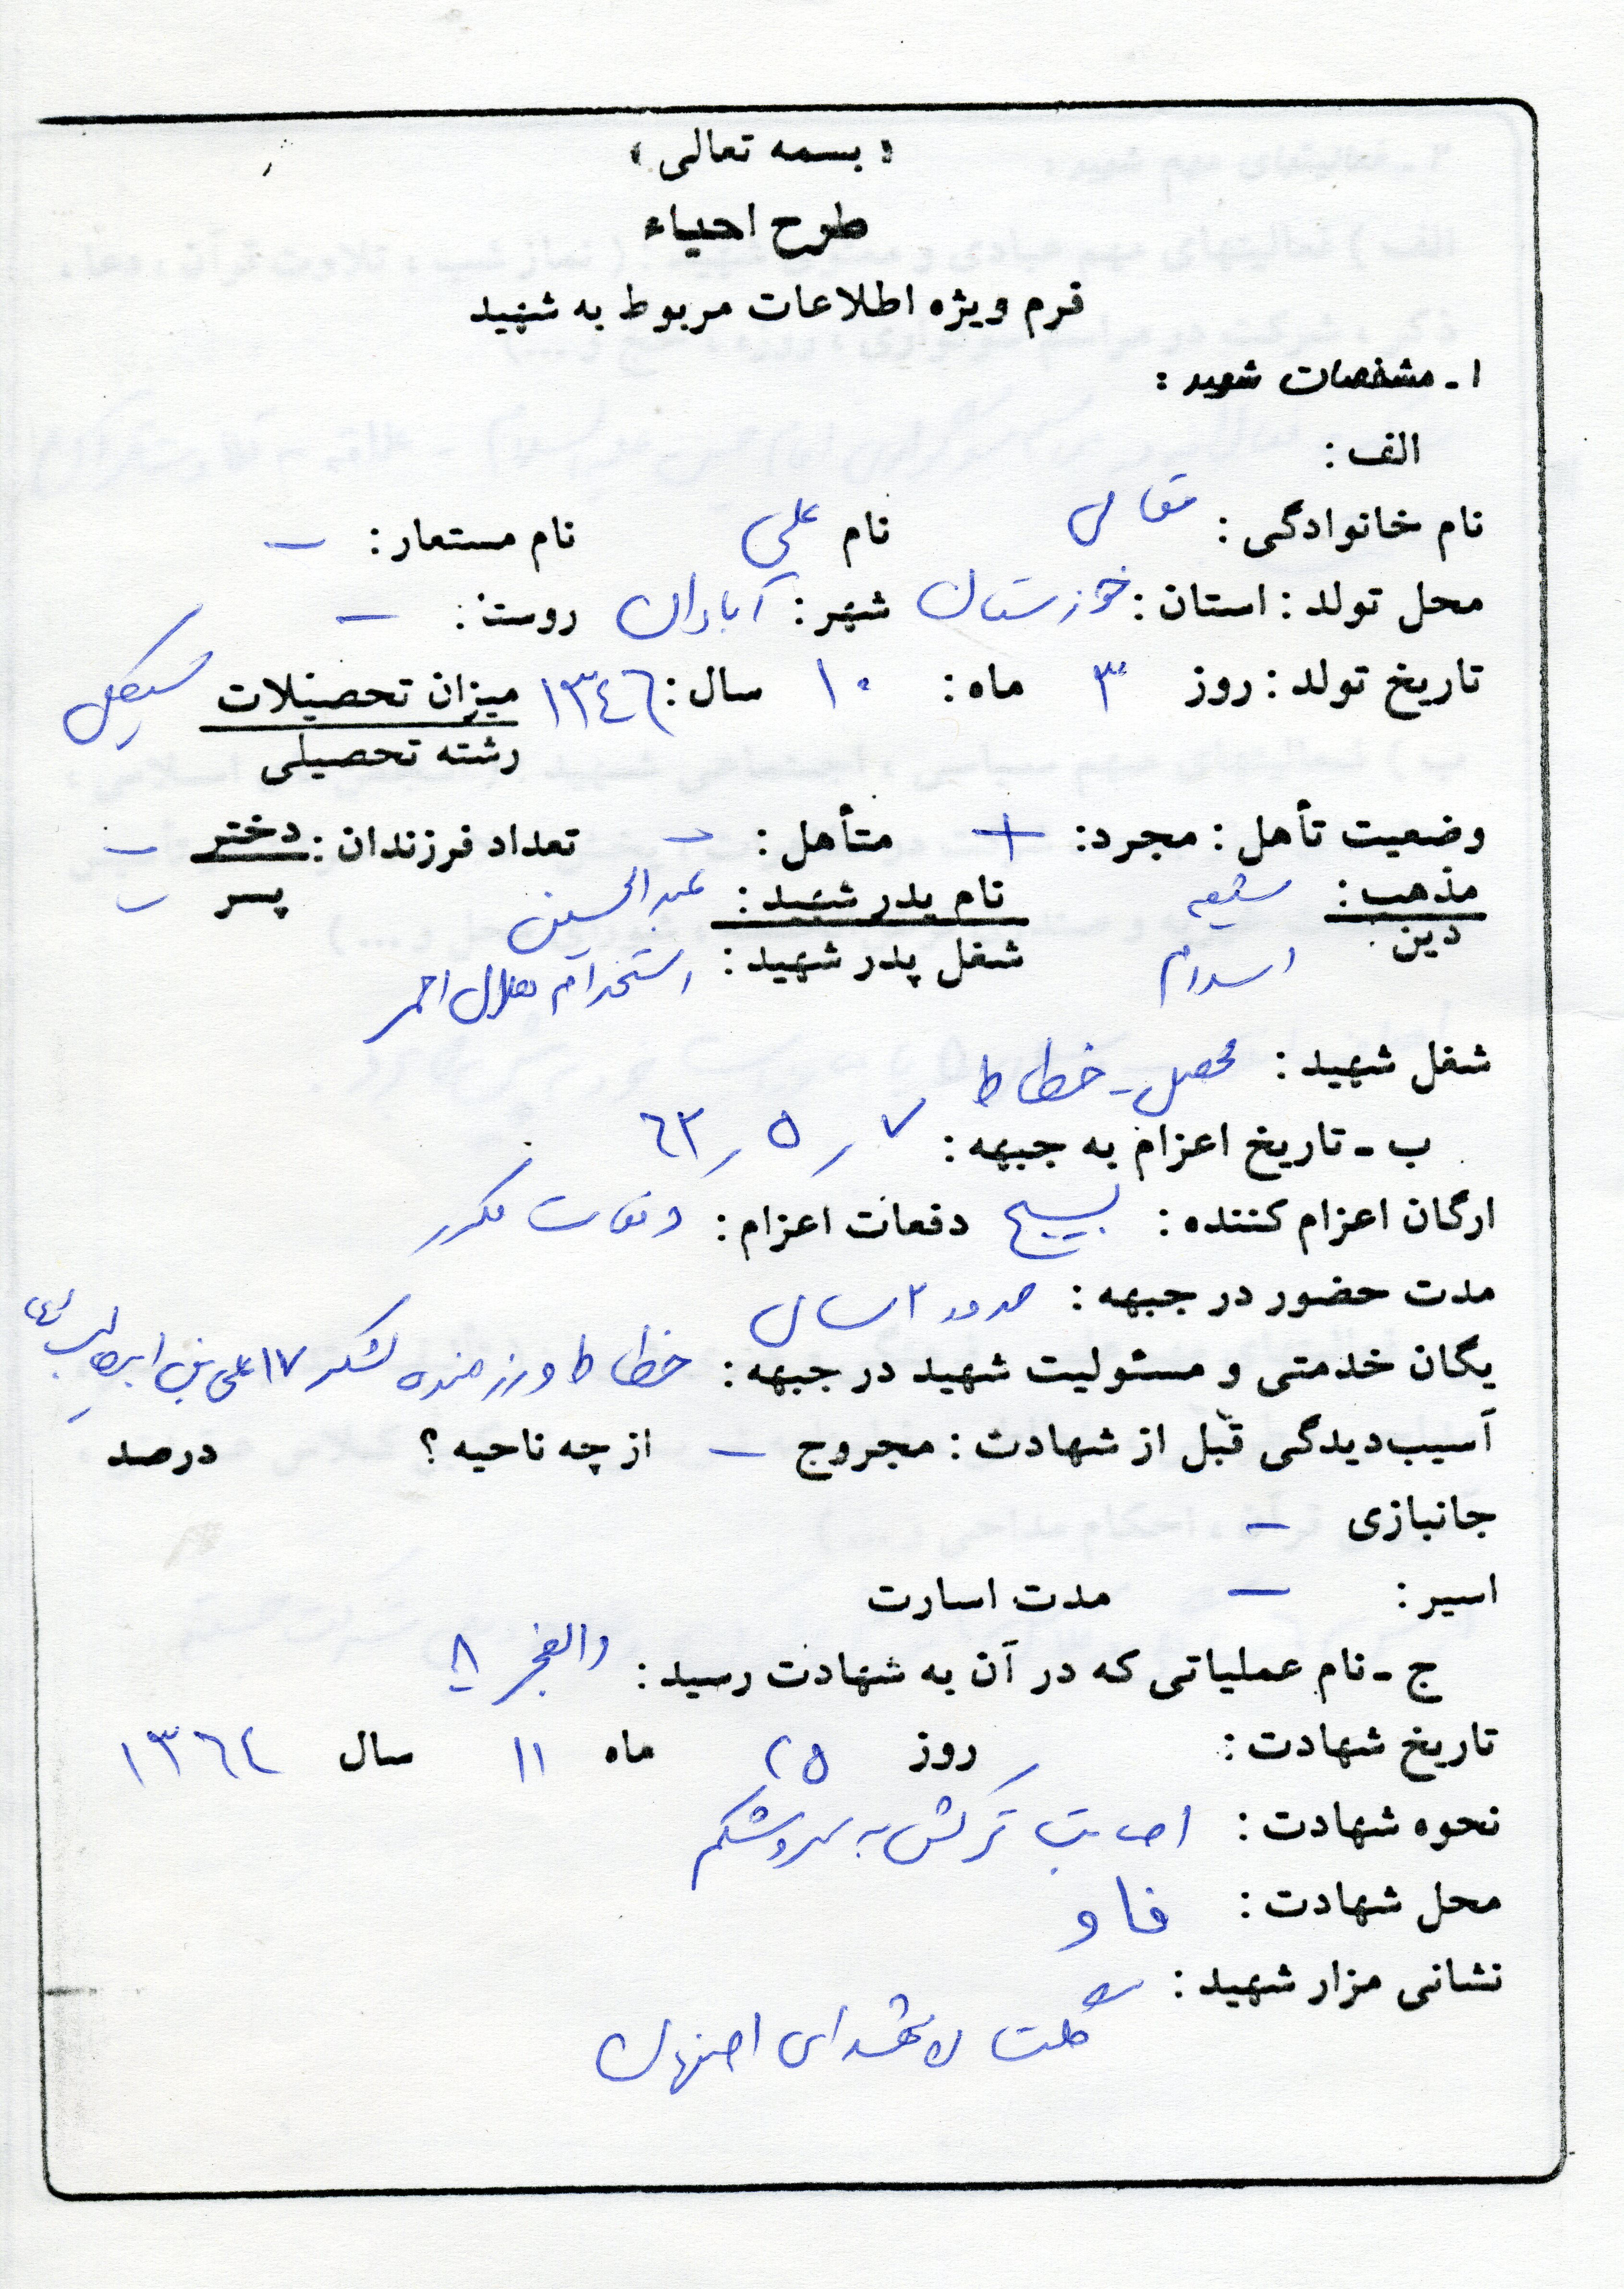 « بسمه تعالی »
طرح احیاء
فرم ویژه اطلاعات مربوط به شهید
۱ ـ مشخصات شهید :
الف :
نام خانوادگی : نام علی نام مستعار : –
محل تولد : استان : خوزستان شهر : آبادان روستا : –
تاریخ تولد : روز ۳ ماه : ۱۰ سال : ۱۳۴۶ میزان تحصیلات
رشته تحصیلی
وضعیت تأهل : مجرد : + متأهل : – تعداد فرزندان : دختر –
مذهب : شیعه نام پدر شهید : عبدالحسین پسر –
دین : اسلام شغل پدر شهید : استخدام هلال احمر
شغل شهید : محصل - خطاط
ب ـ تاریخ اعزام به جبهه : ۷ ر ۵ ر ۶۲
ارگان اعزام کننده : بسیج دفعات اعزام : دفعات مکرر
مدت حضور در جبهه : حدود ۲ سال
یگان خدمتی و مسئولیت شهید در جبهه : خطاط و رزمنده لشکر ۱۷ علی بن ابیطالب (ع)
آسیب‌دیدگی قبل از شهادت : مجروح – از چه ناحیه ؟ درصد
جانبازی –
اسیر : – مدت اسارت
ج ـ نام عملیاتی که در آن به شهادت رسید : والفجر ۸
تاریخ شهادت : روز ۲۵ ماه ۱۱ سال ۱۳۶۴
نحوه شهادت : اصابت ترکش به سر و شکم
محل شهادت : فاو
نشانی مزار شهید :
گلستان شهدای اصفهان